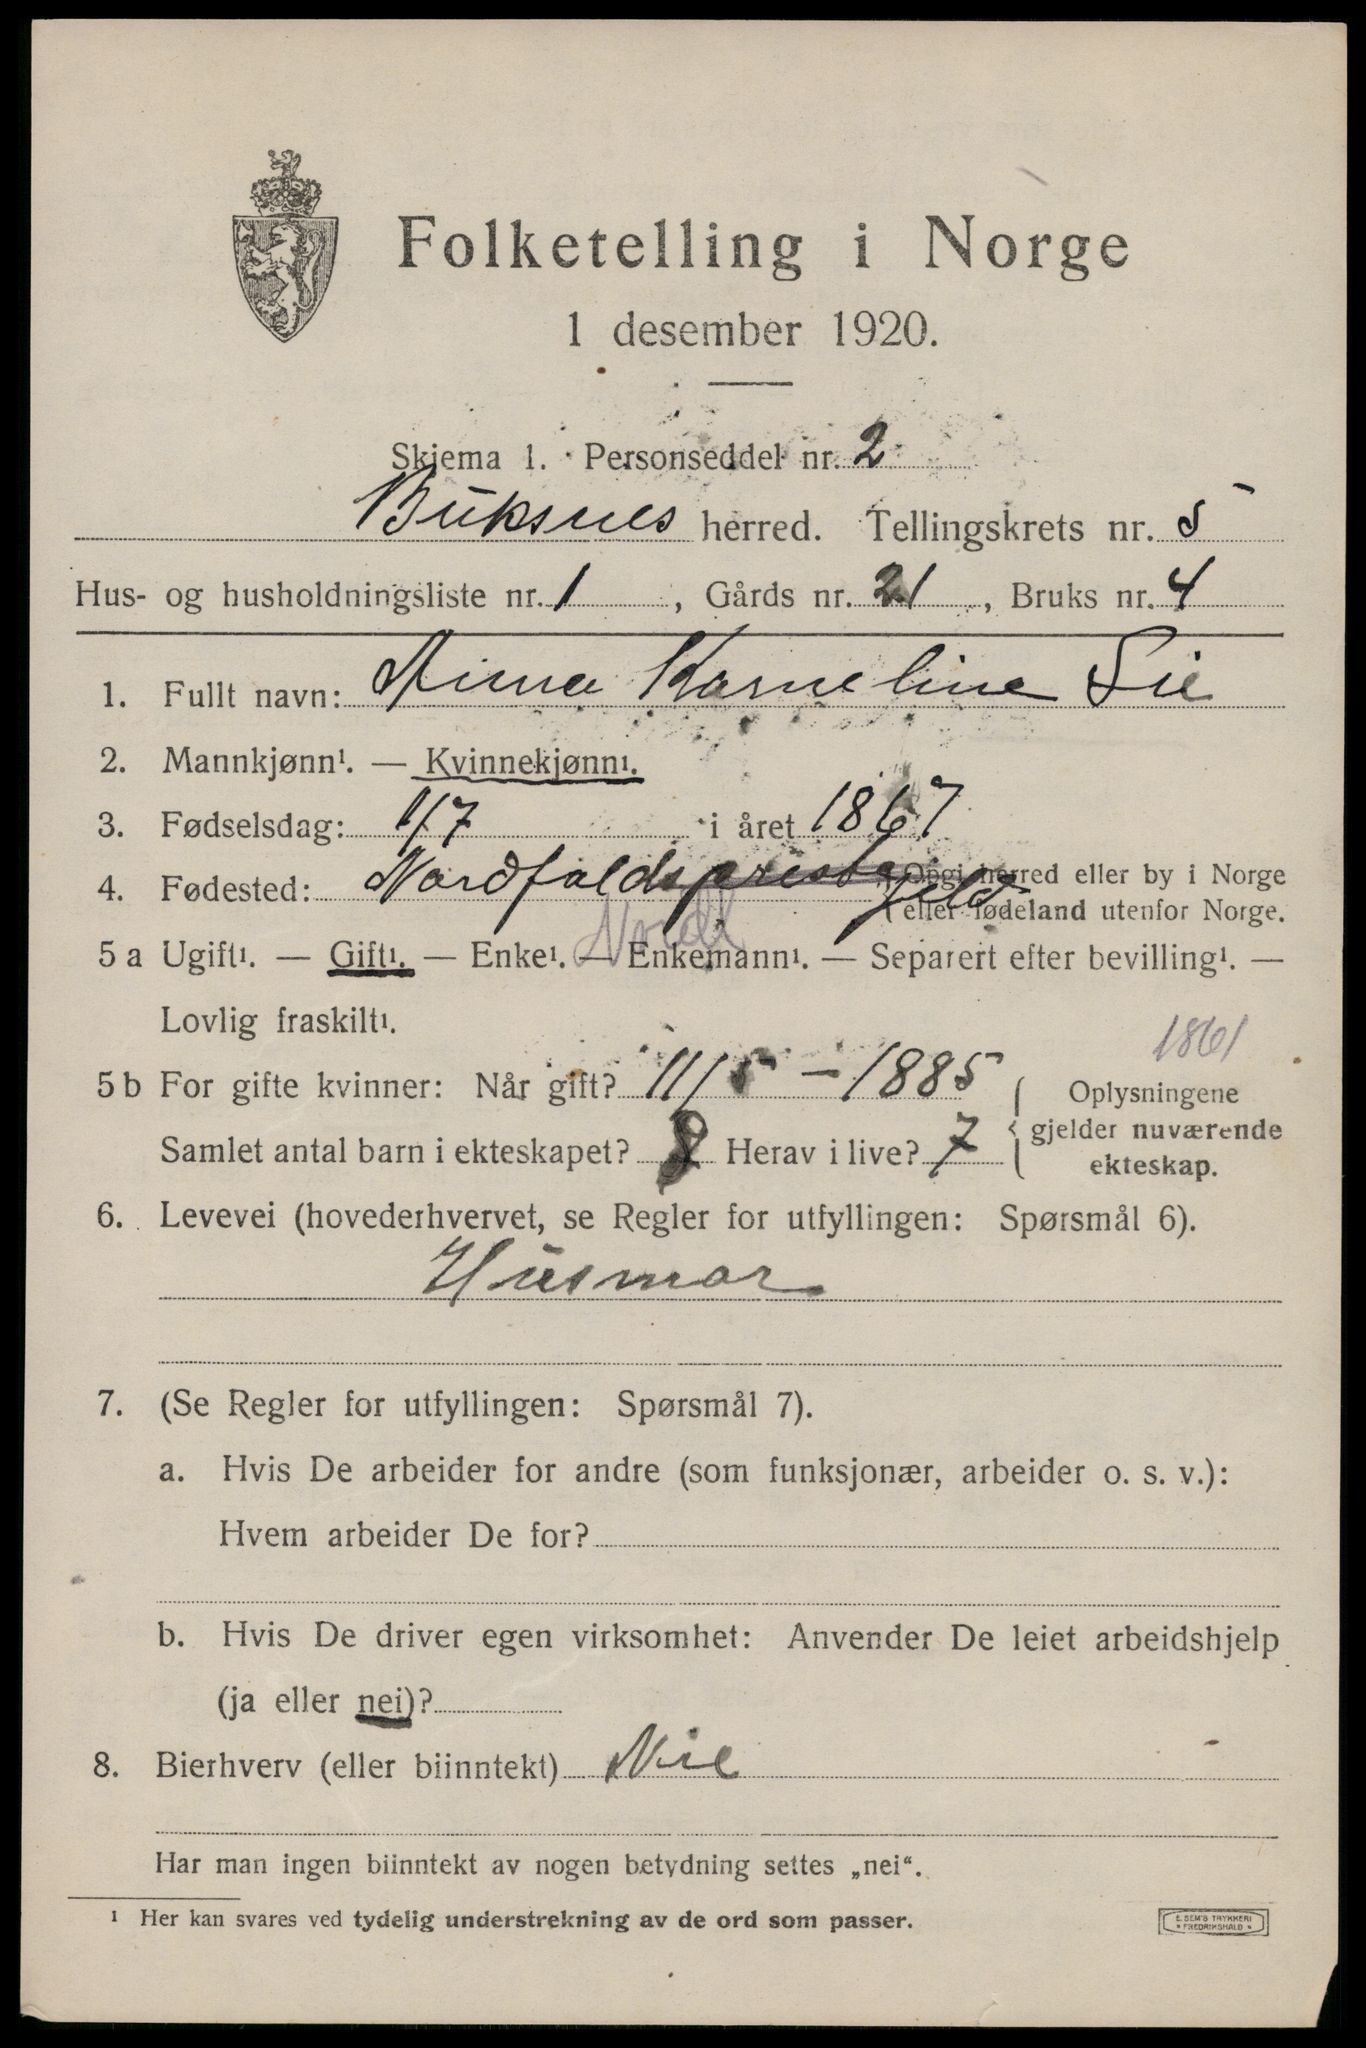 Folketelling i Norge
1 desember 1920.
Skjema 1. Personseddel nr. 2
Buksnes herred. Tellingskrets nr. 5
Hus- og husholdningsliste nr. 1, Gårds nr. 21, Bruks nr. 4
1. Fullt navn: Anna Karneline Lie
2. Mannkjønn¹. — Kvinnekjønn¹.
3. Fødselsdag: 1/7 i året 1867
4. Fødested: Nordfoldsprestegjeld { Opgi herred eller by i Norge
eller fødeland utenfor Norge.
Nordl
5 a Ugift¹. — Gift¹. — Enke¹. — Enkemann¹. — Separert efter bevilling¹. —
Lovlig fraskilt¹.
1861
5 b For gifte kvinner: Når gift? 11/5 – 1885 { Oplysningene
gjelder nuværende
Samlet antal barn i ekteskapet? 8 Herav i live? 7 ekteskap.
6. Levevei (hovederhvervet, se Regler for utfyllingen: Spørsmål 6).
Husmor
7. (Se Regler for utfyllingen: Spørsmål 7).
a. Hvis De arbeider for andre (som funksjonær, arbeider o. s. v.):
Hvem arbeider De for?
b. Hvis De driver egen virksomhet: Anvender De leiet arbeidshjelp
(ja eller nei)?
8. Bierhverv (eller biinntekt) Nei
Har man ingen biinntekt av nogen betydning settes „nei“.
¹ Her kan svares ved tydelig understrekning av de ord som passer.
E. SEM'S TRYKKERI
FREDRIKSHALD